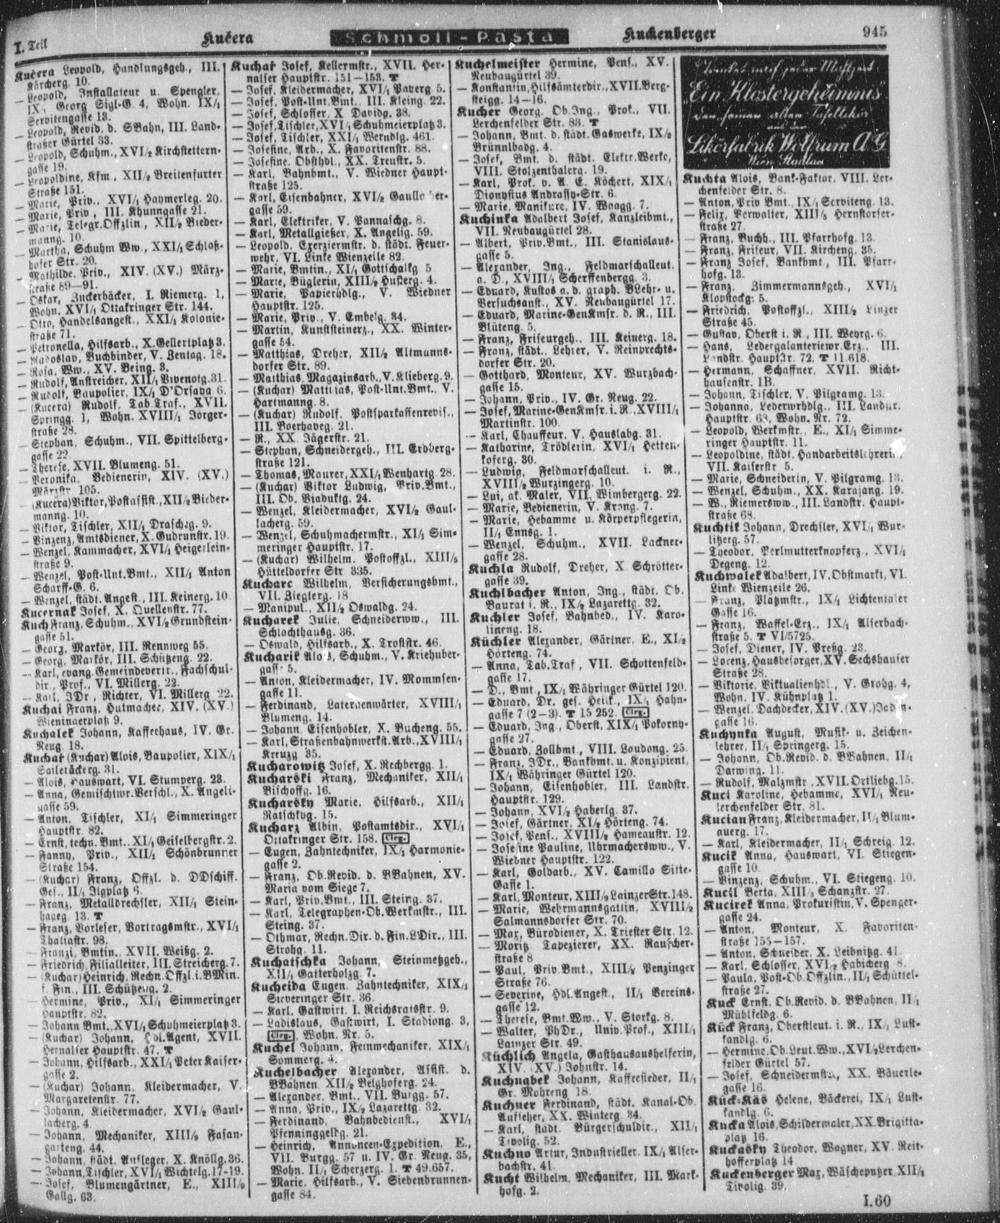 I. Teil
Kučera
Schmoll-Pasta
Kuckenberger
945
Kučera Leopold, Handlungsgeh., III.
Kärcherg. 10.
— Leopold, Installateur u. Spengler,
IX, Georg Sigl-G. 4, Wohn. IX/1
Servitengasse 13.
— Leopold, Revid. d. SBahn, III. Land-
straßer Gürtel 33.
— Leopold, Schuhm., XVI/2 Kirchstettern-
gasse 19.
— Leopoldine, Kfm, XII/2 Breitenfurter
Straße 151.
— Marie, Priv., XVI/1 Haymerleg. 20.
— Marie, Priv., III. Khunngasse 21.
— Marie, Telegr.Offzlin., XII/2 Bieder-
manng. 10.
— Martha, Schuhm Ww., XXI/1 Schloß-
hofer Str. 20.
— Mathilde, Priv., XIV. (XV.) März-
straße 89—91.
— Oskar, Zuckerbäcker, I. Riemerg. 1,
Wohn. XVI/1 Ottakringer Str. 144.
— Otto, Handelsangest., XXI/1 Kolonie-
straße 71.
— Petronella, Hilfsarb., X. Gellertplatz 3.
— Radoslav, Buchbinder, V. Zentag. 18.
— Rosa, Ww., XV. Being. 3.
— Rudolf, Anstreicher, XII/1 Vivenotg. 31.
— Rudolf, Baupolier, IX/1 D'Orsayg. 6.
— (Kucera) Rudolf, Tab.Traf., XVII.
Springg. 1, Wohn. XVIII/1 Jörger-
straße 28.
— Stephan, Schuhm., VII. Spittelberg-
gasse 22.
— Therese, XVII. Blumeng. 51.
— Veronika, Bedienerin, XIV. (XV.)
Märzstr. 105.
— (Kucera) Viktor, Postassist., XII/2 Bieder-
manng. 10.
— Viktor, Tischler, XII/1 Draschg. 9.
— Vinzenz, Amtsdiener, X. Gudrunstr. 19.
— Wenzel, Kammacher, XVI/1 Heigerlein-
straße 9.
— Wenzel, Post-Unt.Bmt., XII/1 Anton
Scharff-G. 6.
— Wenzel, städt. Angest., III. Keinerg. 10.
Kucernak Josef, X. Quellenstr. 77.
Kuch Franz, Schuhm., XVI/2 Grundstein-
gasse 51.
— Georg, Markör, III. Rennweg 55.
— Georg, Markör, III. Schützeng. 22.
— Karl, evang. Gemeindevertr., Fachschul-
dir., Prof., VI. Millerg. 22.
— Karl, JDr., Richter, VI. Millerg. 22.
Kuchai Franz, Hutmacher, XIV. (XV.)
Wieningerplatz 9.
Kuchalek Johann, Kaffeehaus, IV. Gr.
Neug. 18.
Kuchař (Kuchar) Alois, Baupolier, XIX/1
Saileräckerg. 31.
— Alois, Hauswart, VI. Stumperg. 23.
— Anna, Gemischtwr.Verschl., X. Angeli-
gasse 59.
— Anton, Tischler, XI/1 Simmeringer
Hauptstr. 82.
— Ernst, techn. Bmt., XI/1 Geiselbergstr. 2.
— Fanny, Priv., XII/1 Schönbrunner
Straße 154.
— (Kuchar) Franz, Offzl. d. DDschiff.
Ges., II/1 Ilgplatz 6.
— Franz, Metalldrechsler, XII/1 Stein-
hageg. 13. T
— Franz, Vorleser, Vortragsmstr., XVI/1
Thaliastr. 98.
— Franzi, Bmtin., XVII. Weißg. 2.
— Friedrich, Filialleiter, III. Streicherg. 7.
— (Kuchar) Heinrich, Rechn. Offzl. i. BMin.
f. Fin., III. Schützeng. 2.
— Hermine, Priv., XI/1 Simmeringer
Hauptstr. 82.
— Johann Bmt., XVI/1 Schuhmeierplatz 3.
— (Kuchar) Johann, Hdl.Agent, XVII.
Hernalser Hauptstr. 47. T
— Johann, Hilfsarb., XXI/1 Peter Kaiser-
gasse 2.
— (Kuchar) Johann, Kleidermacher, V.
Margaretenstr. 77.
— Johann, Kleidermacher, XVI/2 Gaul-
lacherg. 4.
— Johann, Mechaniker, XIII/2 Fasan-
garteng. 44.
— Johann, städt. Aufleger, X. Knöllg. 36.
— Johann, Tischler, XVI/1 Wichtelg. 17-19.
— Josef, Blumengärtner, E., XIII/2
Gallg. 63.
Kuchař Josef, Kellermstr., XVII. Her-
nalser Hauptstr. 151—153. T
— Josef, Kleidermacher, XVI/1 Payerg. 5.
— Josef, Post-Unt.Bmt., III. Kleing. 22.
— Josef, Schlosser, X. Davidg. 38.
— Josef, Tischler, XVI/1 Schuhmeierplatz 3.
— Josef, Tischler, XXI/1 Werndlg. 461.
— Josefine, Arb., X. Favoritenstr. 88.
— Josefine, Obsthdl., XX. Treustr. 5.
— Karl, Bahnbmt., V. Wiedner Haupt-
straße 125.
— Karl, Eisenbahner, XVI/2 Gaullacher-
gasse 59.
— Karl, Elektriker, V. Pannaschg. 8.
— Karl, Metallgießer, X. Angelig. 59.
— Leopold, Exerziermstr. d. städt. Feuer-
wehr, VI. Linke Wienzeile 82.
— Marie, Bmtin., XI/1 Gottschalkg. 5
— Marie, Büglerin, XIII/2 Hußerg. 4.
— Marie, Papierhdlg., V. Wiedner
Hauptstr. 125.
— Marie, Priv., V. Embelg. 34.
— Martin, Kunststeinerz., XX. Winter-
gasse 54.
— Matthias, Dreher, XII/2 Altmanns-
dorfer Str. 89.
— Matthias, Magazinsarb., V. Klieberg. 9.
— (Kuchar) Matthias, Post-Unt.Bmt., V.
Hartmanng. 8.
— (Kuchar) Rudolf, Postsparkassenrevis.,
III. Boerhaveg. 21.
— R., XX. Jägerstr. 21.
— Stephan, Schneidergeh., III. Erdberg-
straße 121.
— Thomas, Maurer, XXI/1 Wenhartg. 28.
— (Kuchar) Viktor Ludwig, Priv.Bmt.,
III. Ob. Viaduktg. 24.
— Wenzel, Kleidermacher, XVI/2 Gaul-
lacherg. 59.
— Wenzel, Schuhmachermstr., XI/1 Sim-
meringer Hauptstr. 17.
— (Kuchar) Wilhelm, Postoffzl., XIII/5
Hütteldorfer Str. 335.
Kucharc Wilhelm, Versicherungsbmt.,
VII. Zieglerg. 18
— Manipul., XII/2 Oswaldg. 24.
Kucharek Julie, Schneiderww., III.
Schlachthausg. 36.
— Oswald, Hilfsarb., X. Troststr. 46.
Kucharik Alois, Schuhm., V. Kriehuber-
gasse 5.
— Anton, Kleidermacher, IV. Mommsen-
gasse 11.
— Ferdinand, Laternenwärter, XVIII/1
Blumeng. 14.
— Johann, Eisenhobler, X. Bucheng. 55.
— Karl, Straßenbahnwerkst.Arb., XVIII/1
Kreuzg. 35.
Kucharowitz Josef, X. Rechbergg. 1.
Kucharski Franz, Mechaniker, XII/1
Bischoffg. 16.
Kucharsky Marie, Hilfsarb., XII/1
Ratschkyg. 15.
Kucharz Albin, Postamtsdir., XVI/1
Ottakringer Str. 158. Clrg.
— Eugen, Zahntechniker, IX/1 Harmonie-
gasse 2.
— Franz, Ob.Revid. d. BBahnen, XV.
Maria vom Siege 7.
— Karl, Priv.Bmt., III. Steing. 37.
— Karl, Telegraphen-Ob.Werkmstr., III.
Steing. 37.
— Othmar, Rechn.Dir. d. Fin.LDir., III.
Strohg. 11.
Kuchatschka Johann, Steinmetzgeh.,
XII/1 Gatterholzg. 7.
Kucheida Eugen, Zahntechniker, XIX/1
Sieveringer Str. 36.
— Karl, Gastwirt, I. Reichsratsstr. 9.
— Ladislaus, Gastwirt, I. Stadiong. 3,
Clrg., Wohn. Nr. 5.
Kuchel Johann, Feinmechaniker, XIX/1
Sommerg. 4.
Kuchelbacher Alexander, Assist. d.
BBahnen, XII/2 Belghoferg. 24.
— Alexander, Bmt., VII. Burgg. 57
— Anna, Priv., IX/2 Lazarettg. 32.
— Ferdinand, Bahnbedienst., XVI/1
Pfenninggeldg. 21.
— Heinrich, Annoncen-Expedition, E.,
VII. Burgg. 57 u. IV. Gr. Neug. 35,
Wohn. II/1 Scherzerg. 1. T 49.657.
— Marie, Hilfsarb., V. Siebenbrunnen-
gasse 84.
Kuchelmeister Hermine, Pens., XV.
Neubaugürtel 39.
— Konstantin, Hilfsämterdir., XVII. Berg-
steigg. 14—16.
Kucher Georg, Ob.Ing., Prok., VII.
Lerchenfelder Str. 83. T
— Johann, Bmt. d. städt. Gaswerke, IX/2
Brünnlbadg. 4.
— Josef, Bmt. d. städt. Elektr.Werke,
VIII. Stolzenthalerg. 19.
— Karl, Prok. v. A. E. Köchert, XIX/1
Dionysius Andrassy-Str. 6.
— Marie, Manikure, IV. Waagg. 7.
Kuchinka Adalbert Josef, Kanzleibmt.,
VII. Neubaugürtel 28.
— Albert, Priv.Bmt., III. Stanislaus-
gasse 5.
— Alexander, Ing., Feldmarschalleut.
a. D., XVIII/1 Scherffenbergg. 3.
— Eduard, Kustos a. d. graph. BLehr- u.
Versuchsanst., XV. Neubaugürtel 17.
— Eduard, Marine-GenKmsr. d. R., III.
Blüteng. 5.
— Franz, Friseurgeh., III. Keinerg. 18.
— Franz, städt. Lehrer, V. Reinprechts-
dorfer Str. 20.
— Gotthard, Monteur, XV. Wurzbach-
gasse 15.
— Johann, Priv., IV. Gr. Neug. 22.
— Josef, Marine-GenKmsr. i. R., XVIII/1
Martinstr. 100.
— Karl, Chauffeur, V. Hauslabg. 31.
— Katharine, Trödlerin, XVI/1 Hetten-
koferg. 30.
— Ludwig, Feldmarschalleut. i. R.,
XVIII/2 Wurzingerg. 10.
— Lui, ak. Maler, VII. Wimbergerg. 22.
— Marie, Bedienerin, V. Krong. 7.
— Marie, Hebamme u. Körperpflegerin,
II/1 Ennsg. 1.
— Wenzel, Schuhm., XVII. Lackner-
gasse 28.
Kuchla Rudolf, Dreher, X. Schrötter-
gasse 39.
Kuchlbacher Anton, Ing., städt. Ob.
Baurat i. R., IX/2 Lazarettg. 32.
Kuchler Josef, Bahnbed., IV. Karo-
lineng. 18.
Küchler Alexander, Gärtner, E., XI/2
Hörteng. 74.
— Anna, Tab.Traf., VII. Schottenfeld-
gasse 17.
— D., Bmt., IX/1 Währinger Gürtel 120.
— Eduard, Dr. ges. Heilk., IX/1 Hahn-
gasse 7 (2—3). T 15 252. Clrg.
— Eduard, Ing., Oberst, XIX/1 Pokorny-
gasse 27.
— Eduard, Zollbmt., VIII. Loudong. 25.
— Franz, JDr., Bankbmt. u. Konzipient,
IX/1 Währinger Gürtel 120.
— Johann, Eisenhobler, III. Landstr.
Hauptstr. 129.
— Johann, XVI/2 Haberlg. 37.
— Josef, Gärtner, XI/2 Hörteng. 74.
— Josef, Pens., XVIII/2 Hameaustr. 12.
— Josefine Pauline, Uhrmachersww., V.
Wiedner Hauptstr. 122.
— Karl, Goldarb., XV. Camillo Sitte-
Gasse 1.
— Karl, Monteur, XIII/2 Lainzer Str. 148.
— Marie, Wehrmannsgattin, XVIII/2
Salmannsdorfer Str. 70.
— Max, Bürodiener, X. Triester Str. 12.
— Moritz, Tapezierer, XX. Rauscher-
straße 8
— Paul, Priv.Bmt., XIII/2 Penzinger
Straße 76.
— Severine, Hdl.Angest., II/1 Vereins-
gasse 12.
— Therese, Bmt.Ww., V. Storkg. 8.
— Walter, PhDr., Univ.Prof., XIII/1
Lainzer Str. 49.
Küchlich Angela, Gasthausaushelferin,
XIV. (XV.) Johnstr. 14.
Kuchnabek Johann, Kaffeesieder, II/1
Gr. Mohreng. 18.
Kuchner Ferdinand, städt. Kanal-Ob.
Aufseher, XX. Winterg. 34.
— Karl, städt. Bürgerschuldir., XII/1
Tivolig. 52.
Kuchno Artur, Industrieller, IX/1 Alser-
bachstr. 41.
Kucht Wilhelm, Mechaniker, III. Marx-
hofg. 2.
Trinket nach jeder Mahlzeit
„Ein Klostergeheimnis"
den feinen alten Tafellikör
aus der
Likörfabrik Wolfrum A.G.
Wien-Stadlau
Kuchta Alois, Bank-Faktor, VIII. Ler-
chenfelder Str. 8.
— Anton, Priv.Bmt., IX/1 Serviteng. 13.
— Felix, Verwalter, XIII/3 Hernstorfer-
straße 27.
— Franz, Buchh., III. Pfarrhofg. 13.
— Franz, Friseur, VII. Kircheng. 35.
— Franz Josef, Bankbmt., III. Pfarr-
hofg. 13.
— Franz, Zimmermannsgeh., XVI/1
Klopstockg. 5.
— Friedrich, Postoffzl., XIII/2 Linzer
Straße 45.
— Gustav, Oberst i. R., III. Weyrg. 6.
— Hans, Ledergalanteriewr.Erz., III.
Landstr. Hauptstr. 72. T 11.618.
— Hermann, Schaffner, XVII. Richt-
hausenstr. 1B.
— Johann, Tischler, V. Pilgramg. 13.
— Johanna, Lederwrhdlg., III. Landstr.
Hauptstr. 68, Wohn. Nr. 72.
— Leopold, Werkmstr., E., XI/1 Simme-
ringer Hauptstr. 11.
— Leopoldine, städt. Handarbeitslehrerin,
VII. Kaiserstr. 5.
— Marie, Schneiderin, V. Pilgramg. 13.
— Wenzel, Schuhm., XX. Karajang. 19.
— W., Riemersww., III. Landstr. Haupt-
straße 68.
Kuchtik Johann, Drechsler, XVI/1 Wur-
litzerg. 57.
— Theodor, Perlmutterknopferz., XVI/1
Degeng. 12.
Kuchwalek Adalbert, IV. Obstmarkt, VI.
Linke Wienzeile 26.
— Franz, Platzmstr., IX/1 Lichtentaler
Gasse 16.
— Franz, Waffel-Erz., IX/1 Alserbach-
straße 5. T VI/5725.
— Josef, Diener, IV. Preßg. 23.
— Lorenz, Hausbesorger, XV. Sechshauser
Straße 28.
— Viktorie, Viktualienhdl., V. Grohg. 4,
Wohn. IV. Kühnplatz 1.
— Wenzel, Dachdecker, XIV. (XV.) Jadeng-
gasse 16.
Kuchynka August, Musik- u. Zeichen-
lehrer, II/1 Springerg. 15.
— Johann, Ob.Revid. d. BBahnen, II/1
Darwing. 11.
— Rudolf, Malzmstr., XVII. Ortliebg. 15.
Kuci Karoline, Hebamme, XVI/1 Neu-
lerchenfelder Str. 81.
Kucian Franz, Kleidermacher, II/1 Blum-
auerg. 17.
— Karl, Kleidermacher, II/1 Schreig. 12.
Kucik Anna, Hauswart, VI. Stiegen-
gasse 10.
— Vinzenz, Schuhm., VI. Stiegeng. 10.
Kucil Berta, XIII/1 Schanzstr. 27.
Kucirek Anna, Prokuristin, V. Spenger-
gasse 24.
— Anton, Monteur, X. Favoriten-
straße 155—157.
— Anton, Schneider, X. Leibnitzg. 41.
— Karl, Schlosser, XVI/2 Habicherg. 8.
— Paula, Post-Ob.Offzlin., II/1 Schüttel-
straße 27.
Kuck Ernst, Ob.Revid. d. BBahnen, II/1
Mühlfeldg. 6.
Kück Franz, Oberstleut. i. R., IX/1 Lust-
kandlg. 6.
— Hermine, Ob.Leut.Ww., XVI/2 Lerchen-
felder Gürtel 57.
— Josef, Schneidermstr., XX. Bäuerle-
gasse 16.
Kück-Käs Helene, Bäckerei, IX/1 Lust-
kandlg. 6.
Kucka Alois, Schildermaler, XX. Brigitta-
platz 16.
Kuckasky Theodor, Wagner, XV. Reit-
hofferplatz 14
Kuckenberger Max, Wäscheputzer, XII/1
Tivolig. 39.
I.60